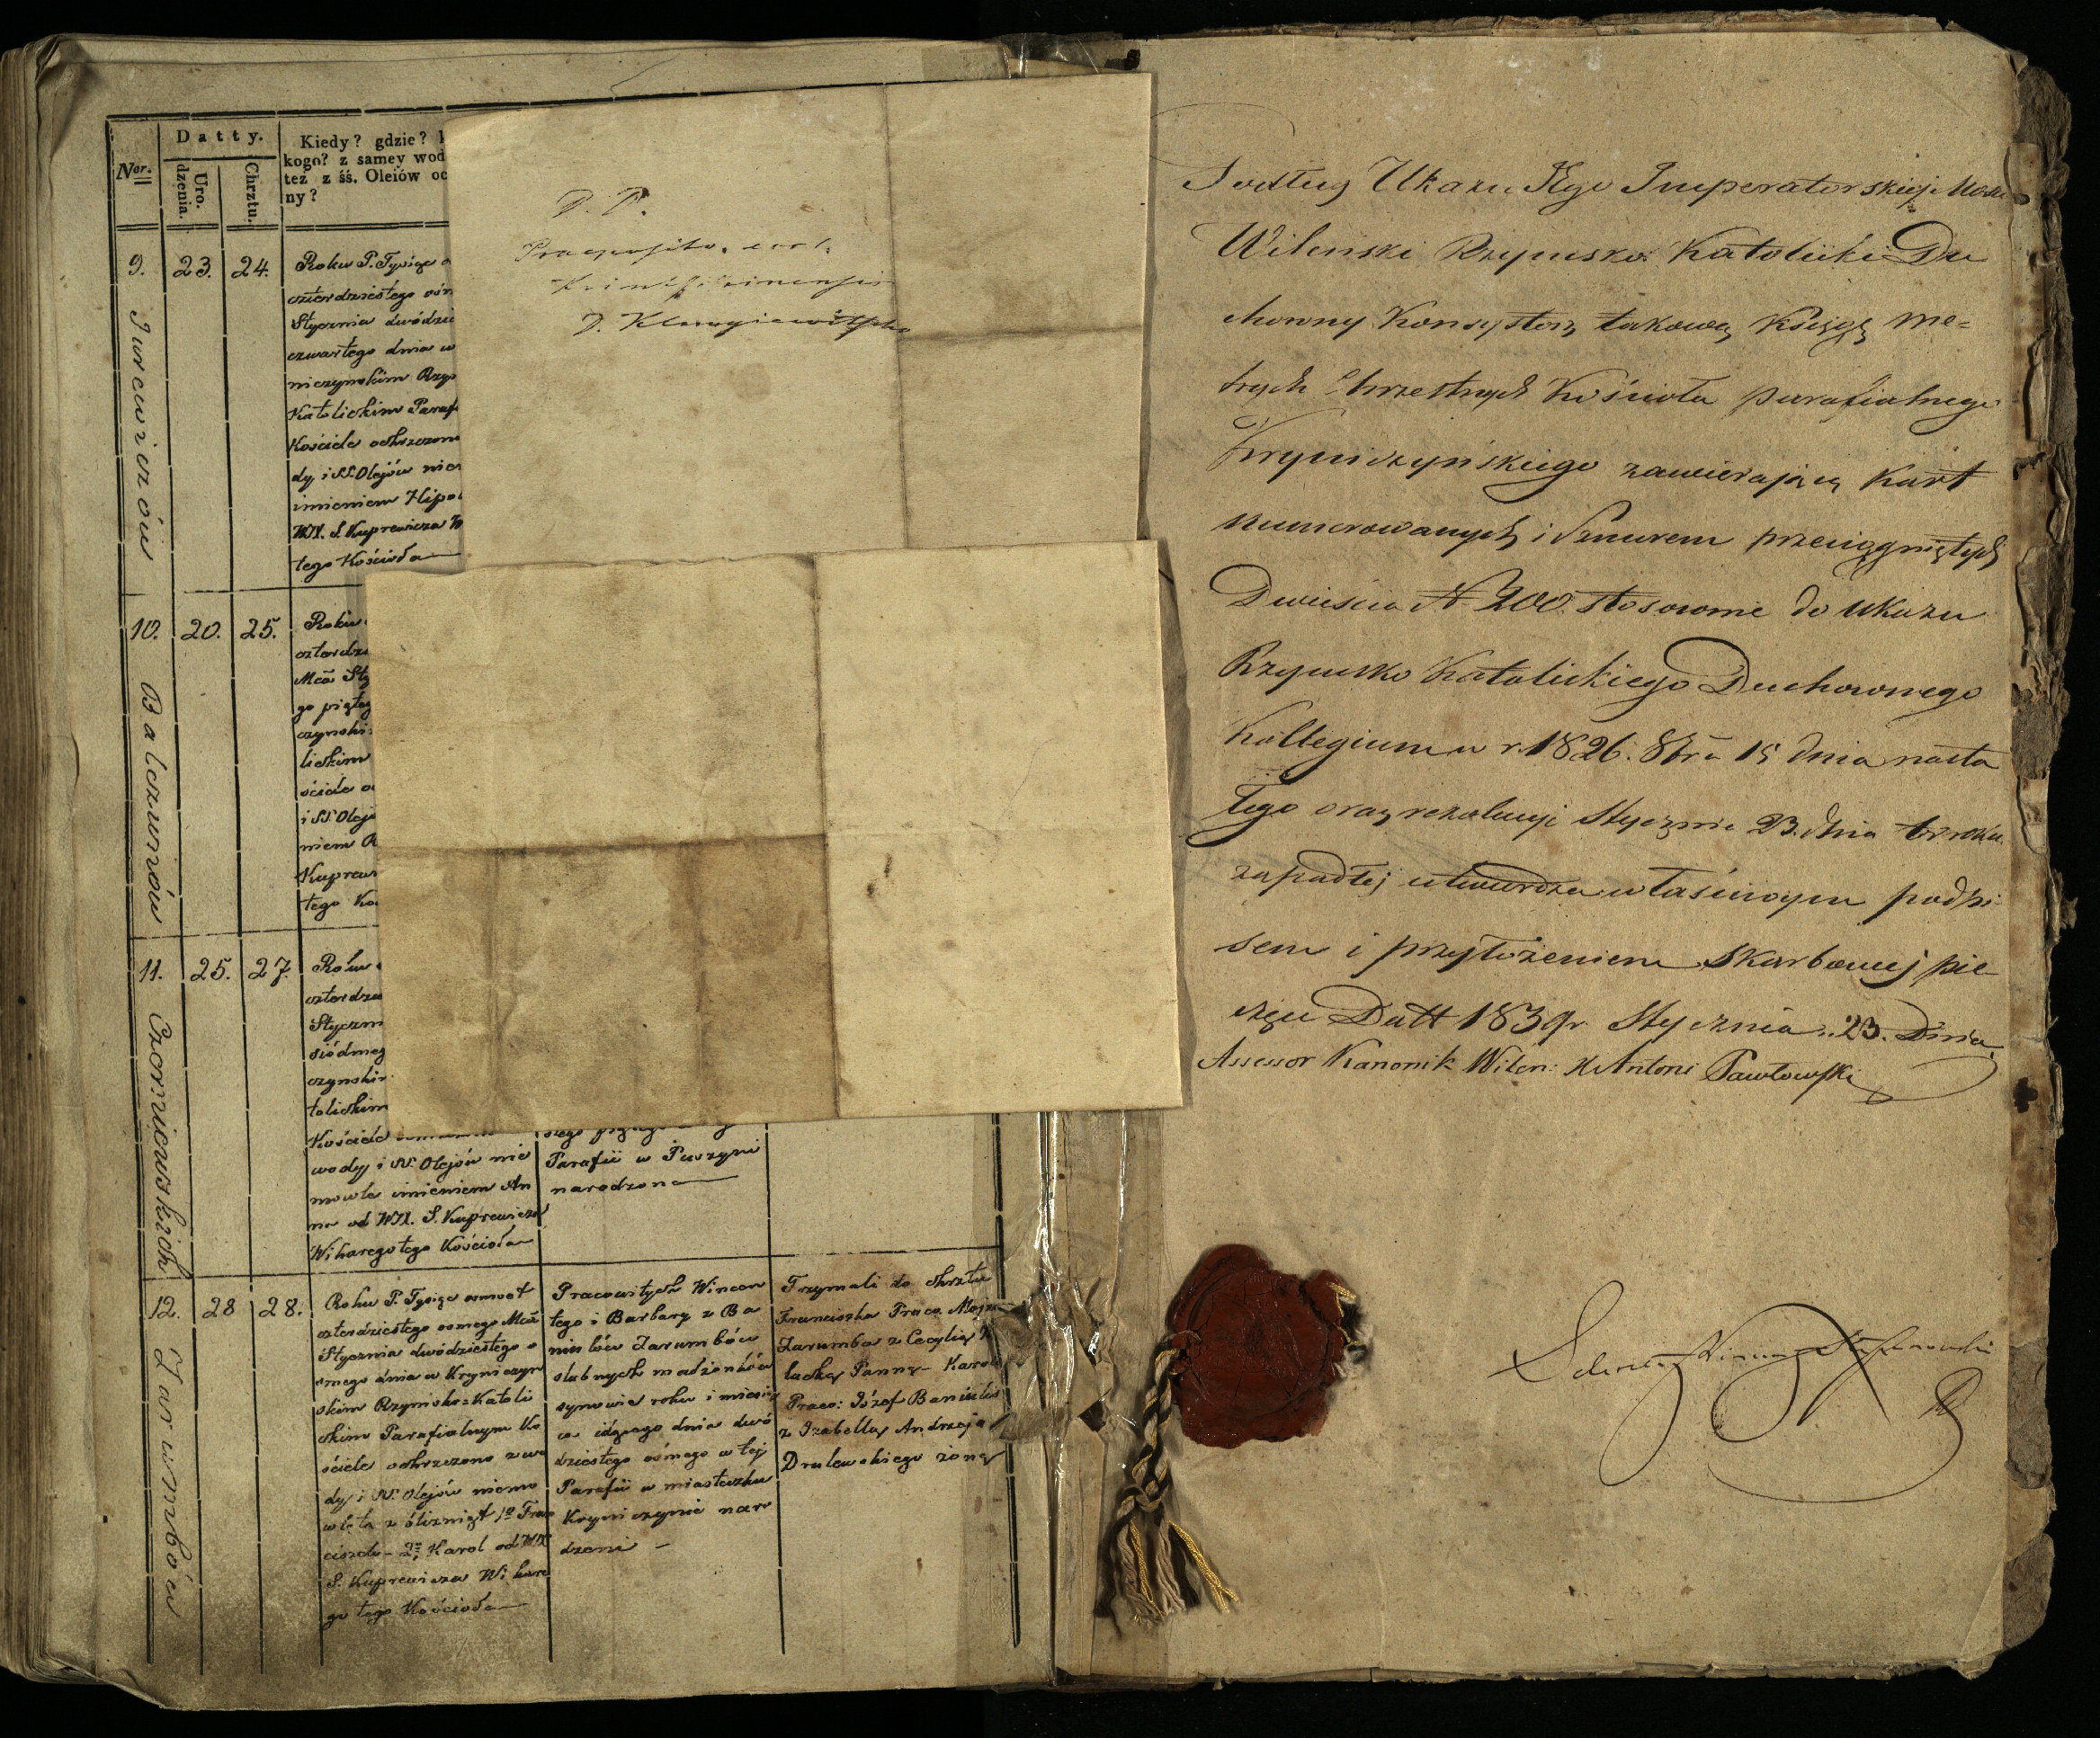 Datty.
Ner.
Uro.
dzenia.
Chrztu.
Kiedy? gdzie?
kogo? z samey wod
też z śś. Oleiów oc
ny?
9.
23.
24.
Jurewiczów
Roku P. Tysiąc
czterdziestego ósm
Stycznia dwódzie
czwartego dnia w
niczyńskim Rzy
Katolickim Paraf
Kościele ochrzczon
dy i SS. Olejów nie
imieniem Hipol
WJX. S. Kuprewicza
tego Kościoła
10.
20.
25.
Balczunów
Roku
czterdzi
Mca Sty
go piąteg
czyński
lickim
ściele o
i SS. Olej
niem
Kuprew
tego Ko
11.
25.
27.
Czerniewskich
Roku
czterdzi
Styczn
siódmeg
czyńskim
tolickim
Kościele
wody i SS. Olejów nie
mowle imieniem An
na od WJX. S. Kuprewicza
Wikarego tego Kościoła
Parafii w Puszyni
narodzone
12.
28
28.
Zarumbów
Roku P. Tysiąc osmset
czterdziestego osmego Mca
Stycznia dwódziestego o
smego dnia w Kryniczyn
skim Rzymsko=Katoli
ckim Parafialnym Ko
ściele ochrzczono z wo
dy i SS. Olejów niemo
wlęta z bliźniąt 1o Fran
ciszek - 2o Karol od WJX
S. Kuprewicza Wikare
go tego Kościoła
Pracowitych Wincen
tego i Barbary z Ba
niulów Zarumbów
ślubnych małżonków
synowie roku i miesią
ca idącego dnia dwó
dziestego ósmego w tej
Parafii w miasteczku
Kryniczynie naro
dzeni -
Trzymali do chrztu
Franciszka Praco.
Zarumba z Cecylią
łacką Panną - Karola
Praco: Józef Baniulis
z Izabellą Andrzeja
Drulewskiego żoną
P. P.
Praeposito
Podług Ukazu Jego Imperatorskiej Mości
Wileński Rzymsko Katolicki Du
chowny Konsystorz takową Księgę Me=
trych Chrzestnych Kościoła parafialnego
Kryniczyńskiego zawierającą Kart
numerowanych i Sznurem przeciągniętych
Dwieście N 200. stosownie do Ukazu
Rzymsko Katolickiego Duchownego
Kollegium w r. 1826. 8bra 15 dnia nasta
łego oraz rezolucyi Stycznia 23. dnia t. roku
zapadłej utwierdza własnoym podpi
sem i przyłożeniem Skarbowej pie
częci Datt 1839r. Stycznia 23. Dnia
Assessor Kanonik Wilen: X Antoni Pawłowski